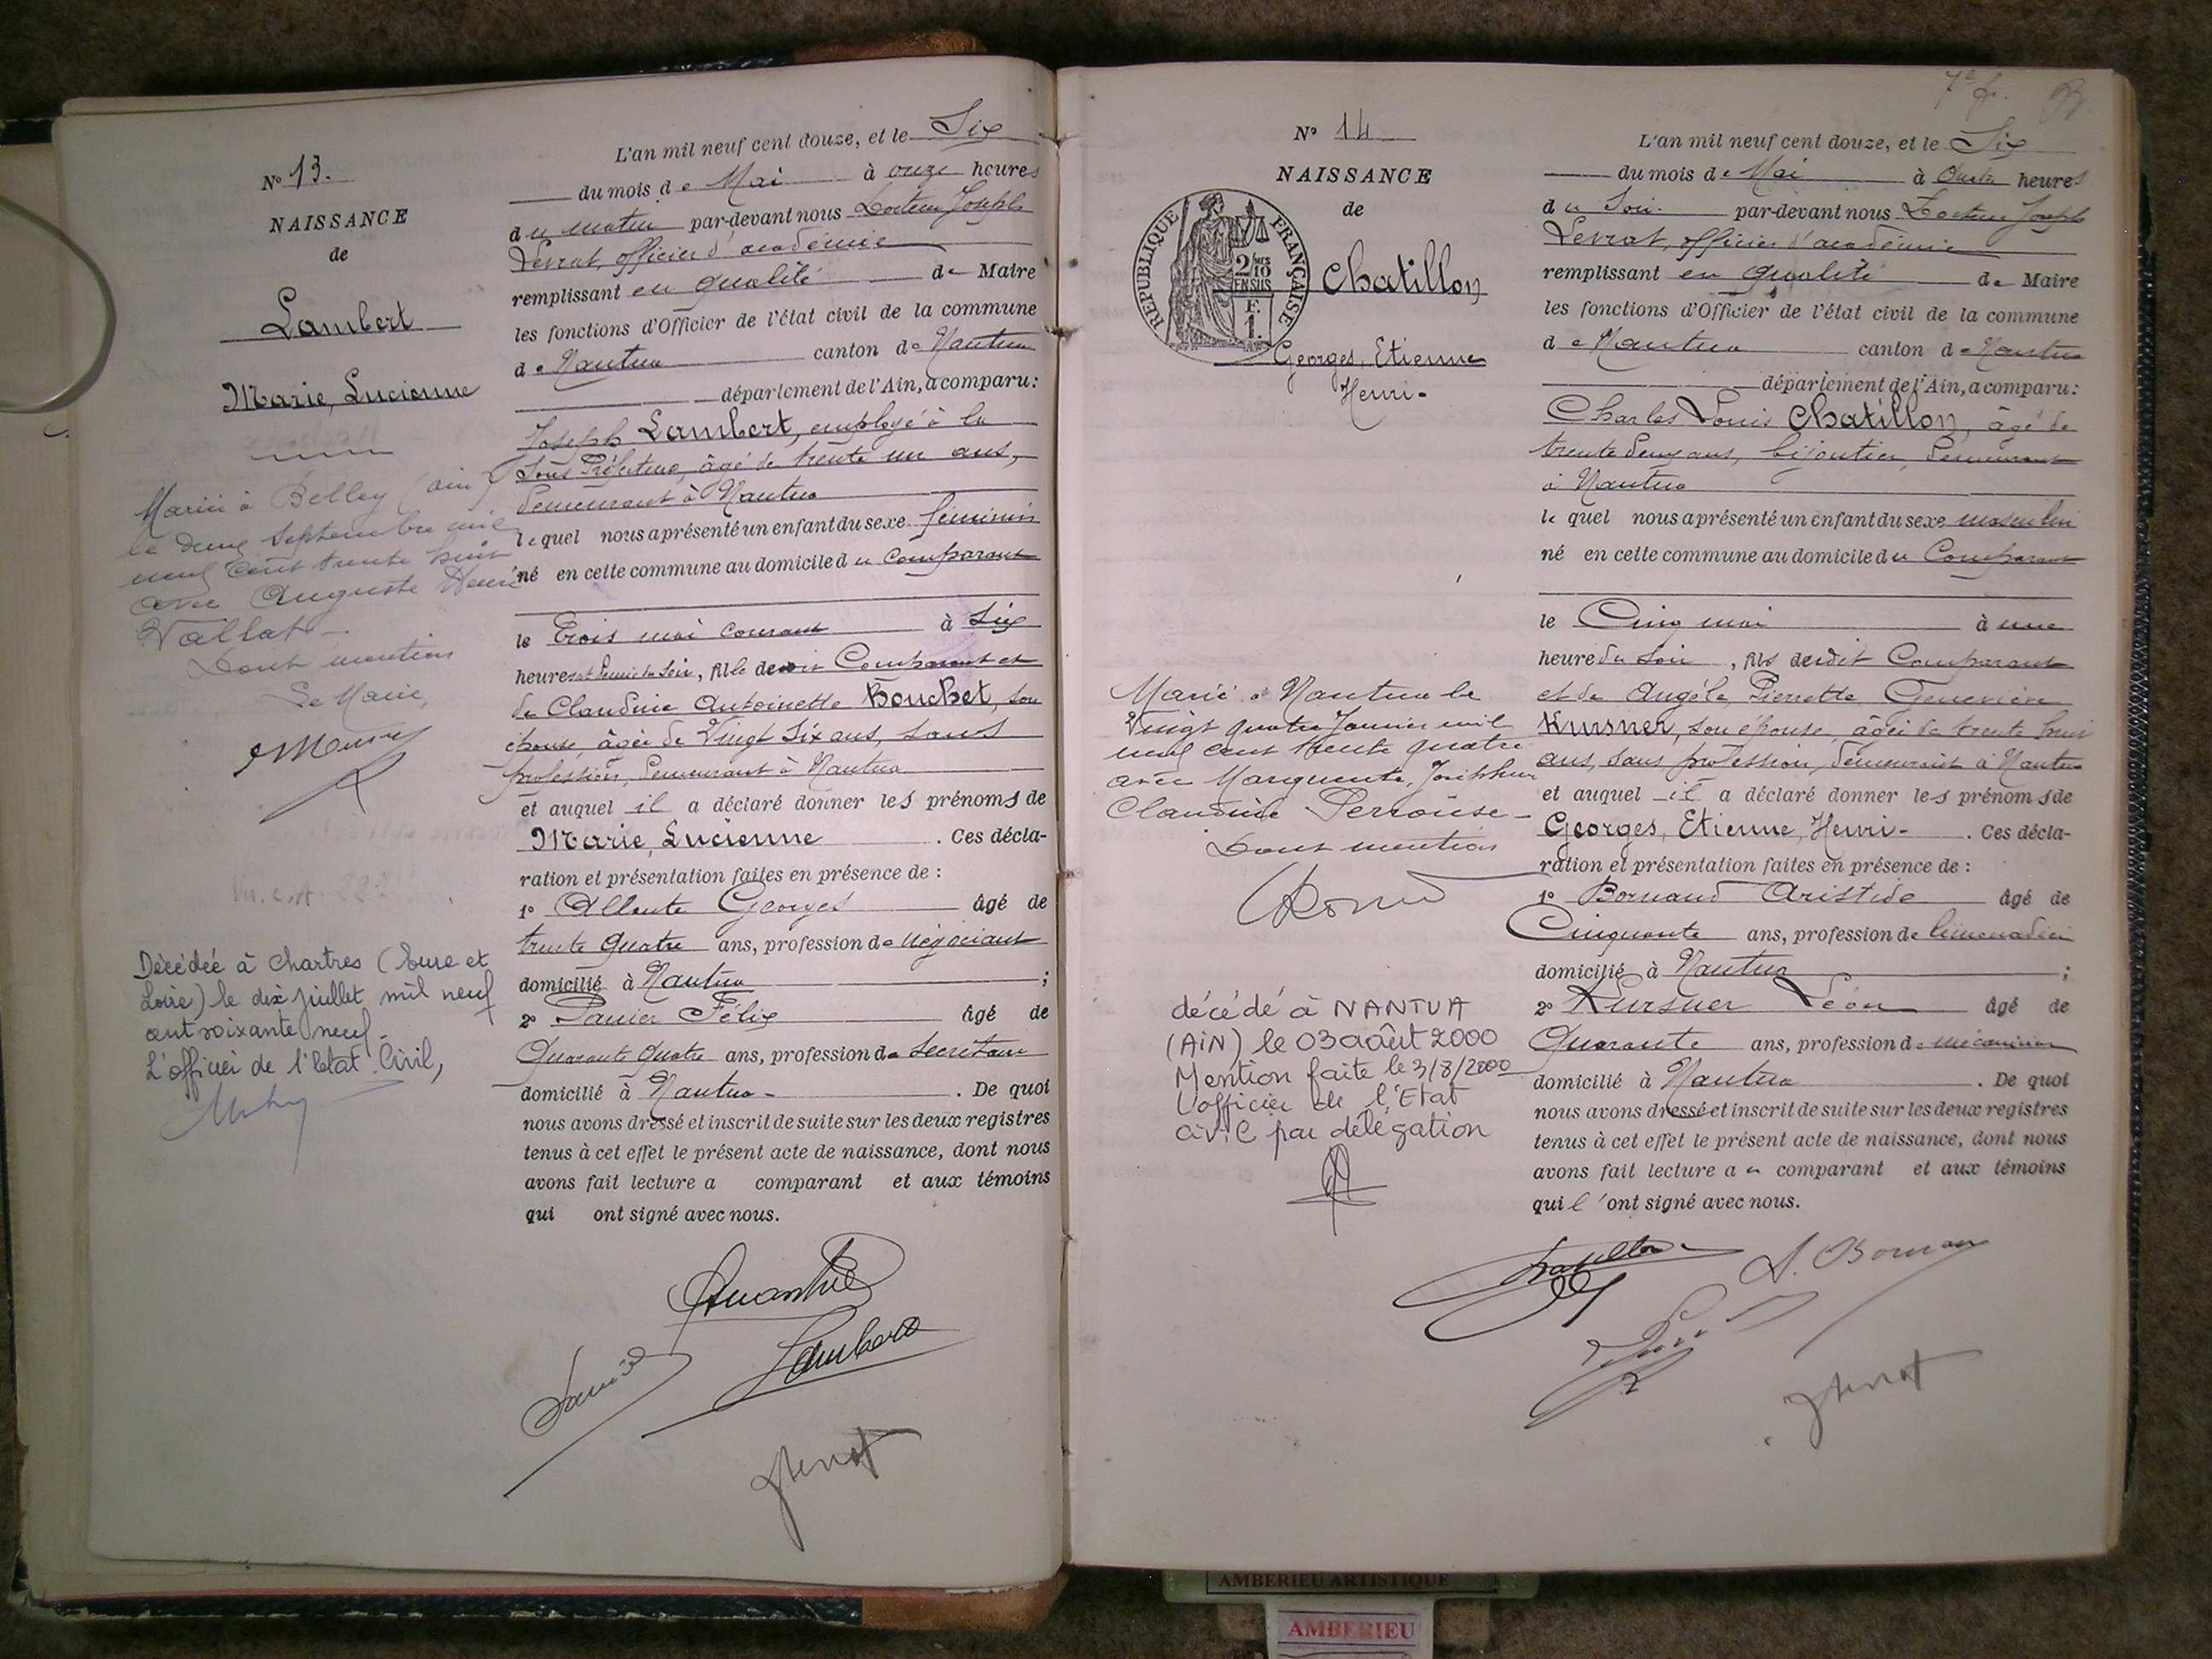 N° 13.
NAISSANCE
de
Lambert
Marie, Lucienne
Marié à Belley (ain)
le deux Septembre mil
neuf cent trente huit
avec Auguste Henri
Vallat -
Dont mention
Le Maire,
Décédée à Chartres (Eure et
Loire) le dix juillet mil neuf
cent soixante neuf -
L'officier de l'Etat Civil,
L'an mil neuf cent douze, et le Six
du mois de Mai à onze heures
du matin par-devant nous Docteur Joseph
Levrat, officier d'académie
remplissant en qualité de Maire
les fonctions d'Officier de l'état civil de la commune
de Nantua canton de Nantua
département de l'Ain, a comparu:
Joseph Lambert, employé à la
Sous Préfecture, âgé de trente un ans,
demeurant à Nantua
lequel nous a présenté un enfant du sexe féminin
né en cette commune au domicile du Comparant
le Trois mai courant à Six
heures et demie du Soir, fille dudit Comparant et
de Claudine Antoinette Bouchet, son
épouse, âgée de Vingt Six ans, sans
profession, demeurant à Nantua
et auquel il a déclaré donner les prénoms de
Marie, Lucienne . Ces décla-
ration et présentation faites en présence de :
1° Georges âgé de
trente quatre ans, profession de Négociant
domicilié à Nantua ;
2° Panier Félix âgé de
Quarante quatre ans, profession de Secrétaire
domicilié à Nantua - . De quoi
nous avons dressé et inscrit de suite sur les deux registres
tenus à cet effet le présent acte de naissance, dont nous
avons fait lecture a comparant et aux témoins
qui ont signé avec nous.
Lambert
JLevrat
N° 14
NAISSANCE
de
RÉPUBLIQUE FRANÇAISE
2/10
EN SUS
F.
1.
Chatillon
Georges, Etienne
Henri -
Marié à Nantua le
Vingt quatre Janvier mil
neuf cent trente quatre
avec Marguerite, Joséphine
Claudine Perrouse -
Dont mention
décédé à NANTUA
(AiN) le 03 août 2000
Mention faite le 3/8/2000
L'officier de l'Etat
Civil par délégation
L'an mil neuf cent douze, et le Six
du mois de Mai à heures
du Soir par-devant nous Docteur Joseph
Levrat, officier d'académie
remplissant en qualité de Maire
les fonctions d'Officier de l'état civil de la commune
de Nantua canton de Nantua
département de l'Ain, a comparu:
Charles Louis Chatillon, âgé de
trente deux ans, bijoutier, demeurant
à Nantua
lequel nous a présenté un enfant du sexe masculin
né en cette commune au domicile du Comparant
le Cinq mai à une
heure du Soir, fils dudit Comparant
et de Angèle, Pierrette Geneviève
Kursner, son épouse, âgée de trente huit
ans, sans profession, demeurant à Nantua
et auquel il a déclaré donner les prénoms de
Georges, Etienne, Henri - . Ces décla-
ration et présentation faites en présence de :
1° Bornand Aristide âgé de
Cinquante ans, profession de limonadier
domicilié à Nantua ;
2° Kursner Léon âgé de
Quarante ans, profession de mécanicien
domicilié à Nantua . De quoi
nous avons dressé et inscrit de suite sur les deux registres
tenus à cet effet le présent acte de naissance, dont nous
avons fait lecture au comparant et aux témoins
qui l'ont signé avec nous.
Chatillon
A. Bornan
JLevrat
AMBERIEU ARTISTIQUE
AMBERIEU